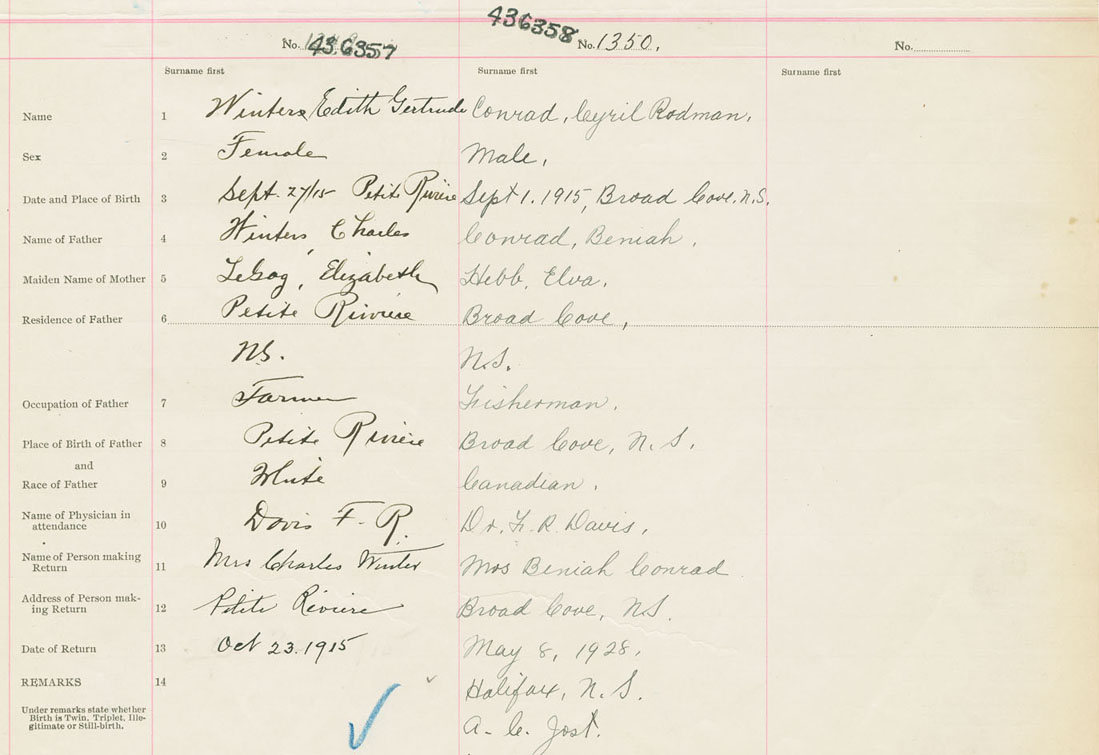 436358
No. 436357 No. 1350. No.
Surname first Surname first Surname first
Name 1 Winters, Edith Gertrude Conrad, Cyril Rodman.
Sex 2 Female Male.
Date and Place of Birth 3 Sept. 27/15 Petite Riviere Sept 1. 1915, Broad Cove. N.S.
Name of Father 4 Winters Charles Conrad, Beniah.
Maiden Name of Mother 5 Elizabeth Hebb, Elva.
Residence of Father 6 Petite Riviere Broad Cove,
NS. N.S.
Occupation of Father 7 Farmer Fisherman.
Place of Birth of Father 8 Petite Riviere Broad Cove, N.S.
and
Race of Father 9 White Canadian.
Name of Physician in
attendance 10 Davis F. R. Dr. F. R. Davis.
Name of Person making
Return 11 Mrs Charles Winter Mrs Beniah Conrad
Address of Person mak-
ing Return 12 Petite Riviere Broad Cove, N.S.
Date of Return 13 Oct 23. 1915 May 8, 1928.
REMARKS 14 Halifax, N.S.
Under remarks state whether
Birth is Twin, Triplet, Ille-
gitimate or Still-birth. A. C. Jost.